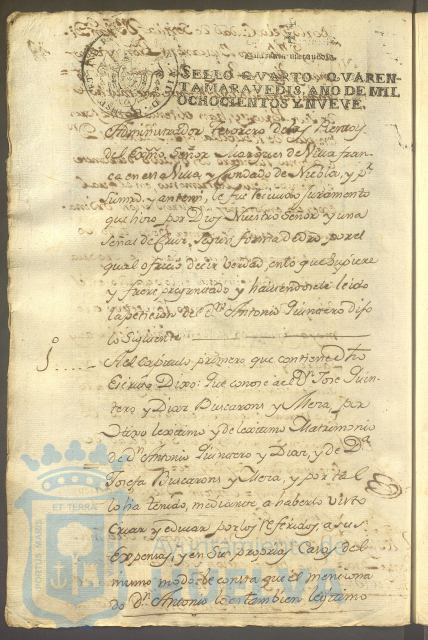 SELLO QVARTO, QVAREN-
TA MARAVEDIS, AÑO DE MIL
OCHOCIENTOS Y NVEVE.
Administrador Tesorero de las Rentas
del Exmo. Señor Marques de Villa fran
ca en esta Villa y Condado de Niebla, y pr.
su md. y antemi, le fue recivido Juramento
que hizo por Dios Nuestro Señor y una
Señal de Cruz, segun forma de dro. por el
qual ofrecio decir verdad, en lo que supiere
y fuere preguntado y haviendosele leido
la peticion del Dn. Antonio Quintero dijo
lo Siguiente
1o. Al Capitulo primero que contiene dho
Escrito Dixo: Que conose a el Dn. Jose Quin-
tero y Diaz Buscarons y Mera, por
Hixo lexitimo y de lexitimo Matrimonio
de Dn. Antonio Quintero y Diaz, y de Da.
Josefa Buscarons y Mera, y por tal
lo ha tenido, mediante a haberlo visto
Criar y educar por los referidos, a sus
Expensas, y en sus propias Casas del
mismo modo le consta que el menciona
do Dn. Antonio lo es tambien lexitimo
PORTUS MARIS
ET TERRÆ
Ayuntamiento de
HUELVA